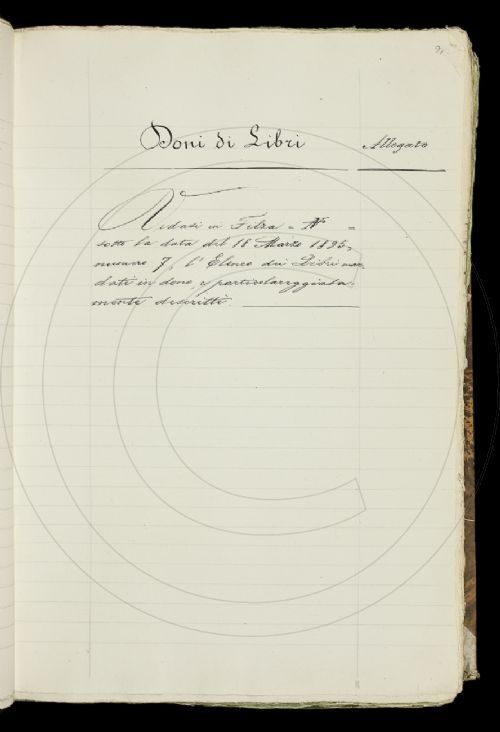 9,
Doni di Libri
Allegato
Vedasi in Filza = N =
sotto la data del 18 Marzo 1895=
numero 7, l'Elenco dei Libri man=
dati in dono, e particolareggiata=
mente descritti.